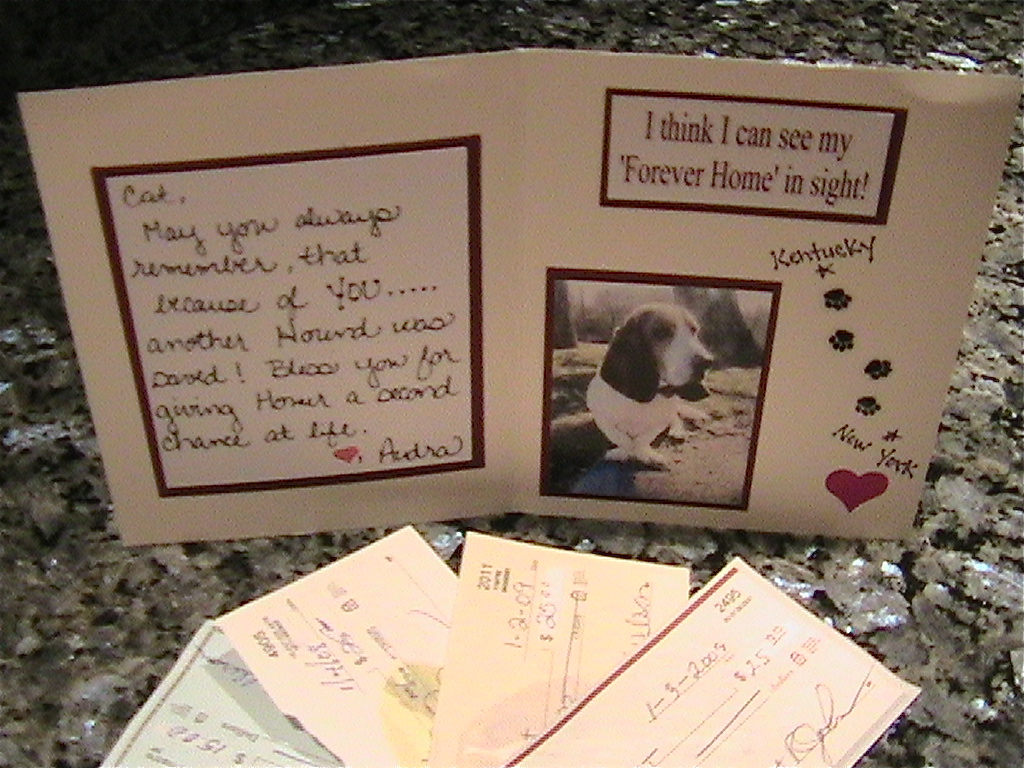 Cat,
May you always
remember, that
because of YOU.....
another Hound was
saved! Bless you for
giving Homer a second
chance at life.
♥, Audra
I think I can see my
'Forever Home' in sight!
Kentucky
New York
4905
2017
1-2-09
$ 25.00
2495
1-3-2009
$ 25.00
$ 15.00